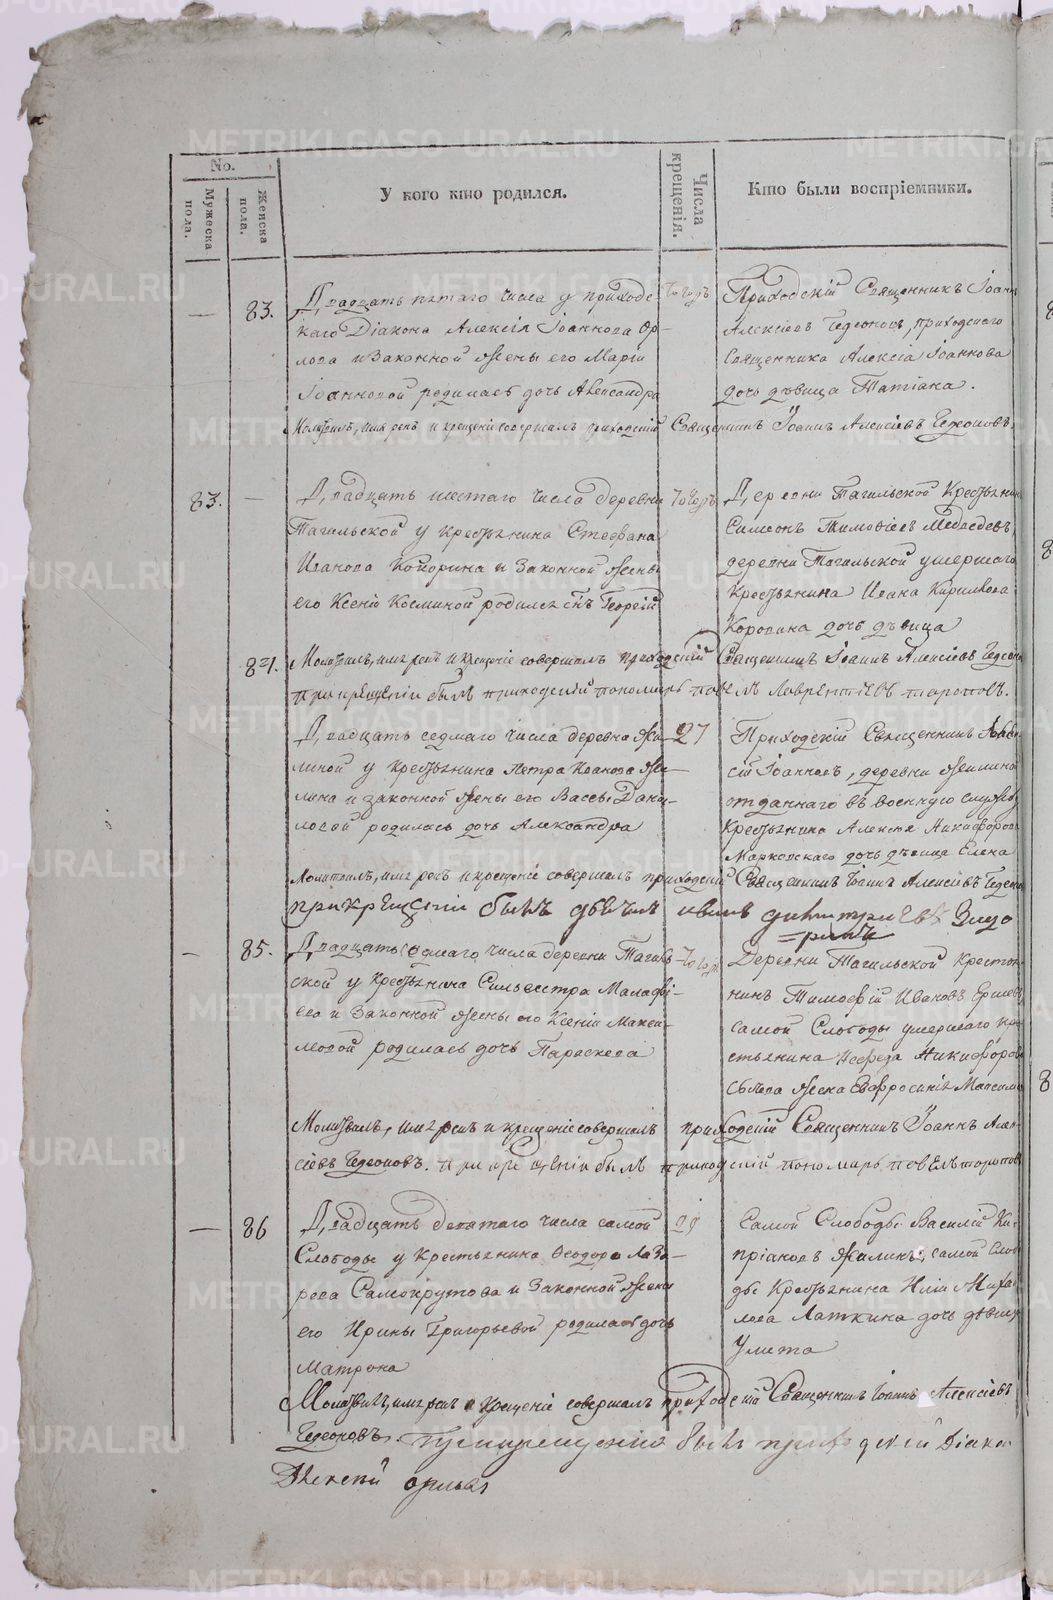 No.
Мужеска пола.
Женска пола.
У кого кто родился.
Числа крещенія.
Кто были воспріемники.
— 83. Двадцать пятаго числа у приходс-
каго Діакона Алексія Іоаннова Ор-
лова и законной жены его Маріи
Іоанновой родилась дочь Александра
Тогожъ
Приходскій Священникъ Іоаннъ
Алексіевъ Гедеоновъ, приходскаго
Священника Алексіа Іоаннова
дочь дѣвица Татіана.
Молитвилъ, имя рекъ и крещеніе совершалъ приходскій Священникъ Іоаннъ Алексіевъ Гедеоновъ.
83. — Двадцать шестаго числа деревни
Тагильской у крестьянина Стефана
Иванова Кокорина и законной жены
его Ксеніи Косминой родился сынъ Георгій
Тогожъ
Деревни Тагильской Крестьянинъ
Симеонъ Тимофіевъ Медведевъ,
деревни Тагильской умершаго
крестьянина Ивана Кирилова
Коровина дочь дѣвица
84. Молитвилъ, имя рекъ и крещеніе совершалъ приходскій Священникъ Іоаннъ Алексіевъ Гедеоновъ
при крещеніи былъ приходскій пономарь павелъ Лаврентіевъ тороповъ.
Двадцать седмаго числа деревни Жи-
линой у крестьянина Петра Иванова Жи-
лина и законной жены его Вассы Дани-
ловой родилась дочь Александра
27
Приходскій Священникъ Алек-
сій Іоанновъ, деревни Жилиной
отданнаго въ военную службу
Крестьянина Алексія Никифорова
Марковскаго дочь дѣвица Елена
Молитвилъ, имя рекъ и крещеніе совершалъ приходскій Священникъ Іоаннъ Алексіевъ Гедеоновъ
при крещеніи былъ дьячекъ иванъ димитриевъ
— 85. Двадцать седмаго числа деревни Тагиль-
ской у Крестьянина Сильвестра Малафі-
ева и законной жены его Ксеніи Макси-
мовой родилась дочь Параскева
Тогожъ
Деревни Тагильской Крестья-
нинъ Тимофій Ивановъ
самой Слободы умершаго кре-
стьянина Никифорова
жена Евфросинія Максимова
Молитвилъ, имя рекъ и крещеніе совершалъ приходскій Священникъ Іоаннъ Алек-
сіевъ Гедеоновъ. при крещеніи былъ приходскій пономарь павелъ торопов
— 86 Двадцать девятаго числа самой
Слободы у крестьянина Феодора Лаза-
рева Самокрутова и законной жены
его Ирины Григорьевой родилась дочь
Матрона
29
Самой Слободы Василій Ки-
пріановъ Жилинъ, самой Сло-
ды Крестьянина Иліи Миха-
лова Латкина дочь дѣвица
Улита
Молитвилъ, имя рекъ и крещеніе совершалъ приходскій Священникъ Іоаннъ Алексіевъ
Гедеоновъ. При крещеніи былъ приходскій Діаконъ
Алексій орловъ
METRIKI.GASO-URAL.RU